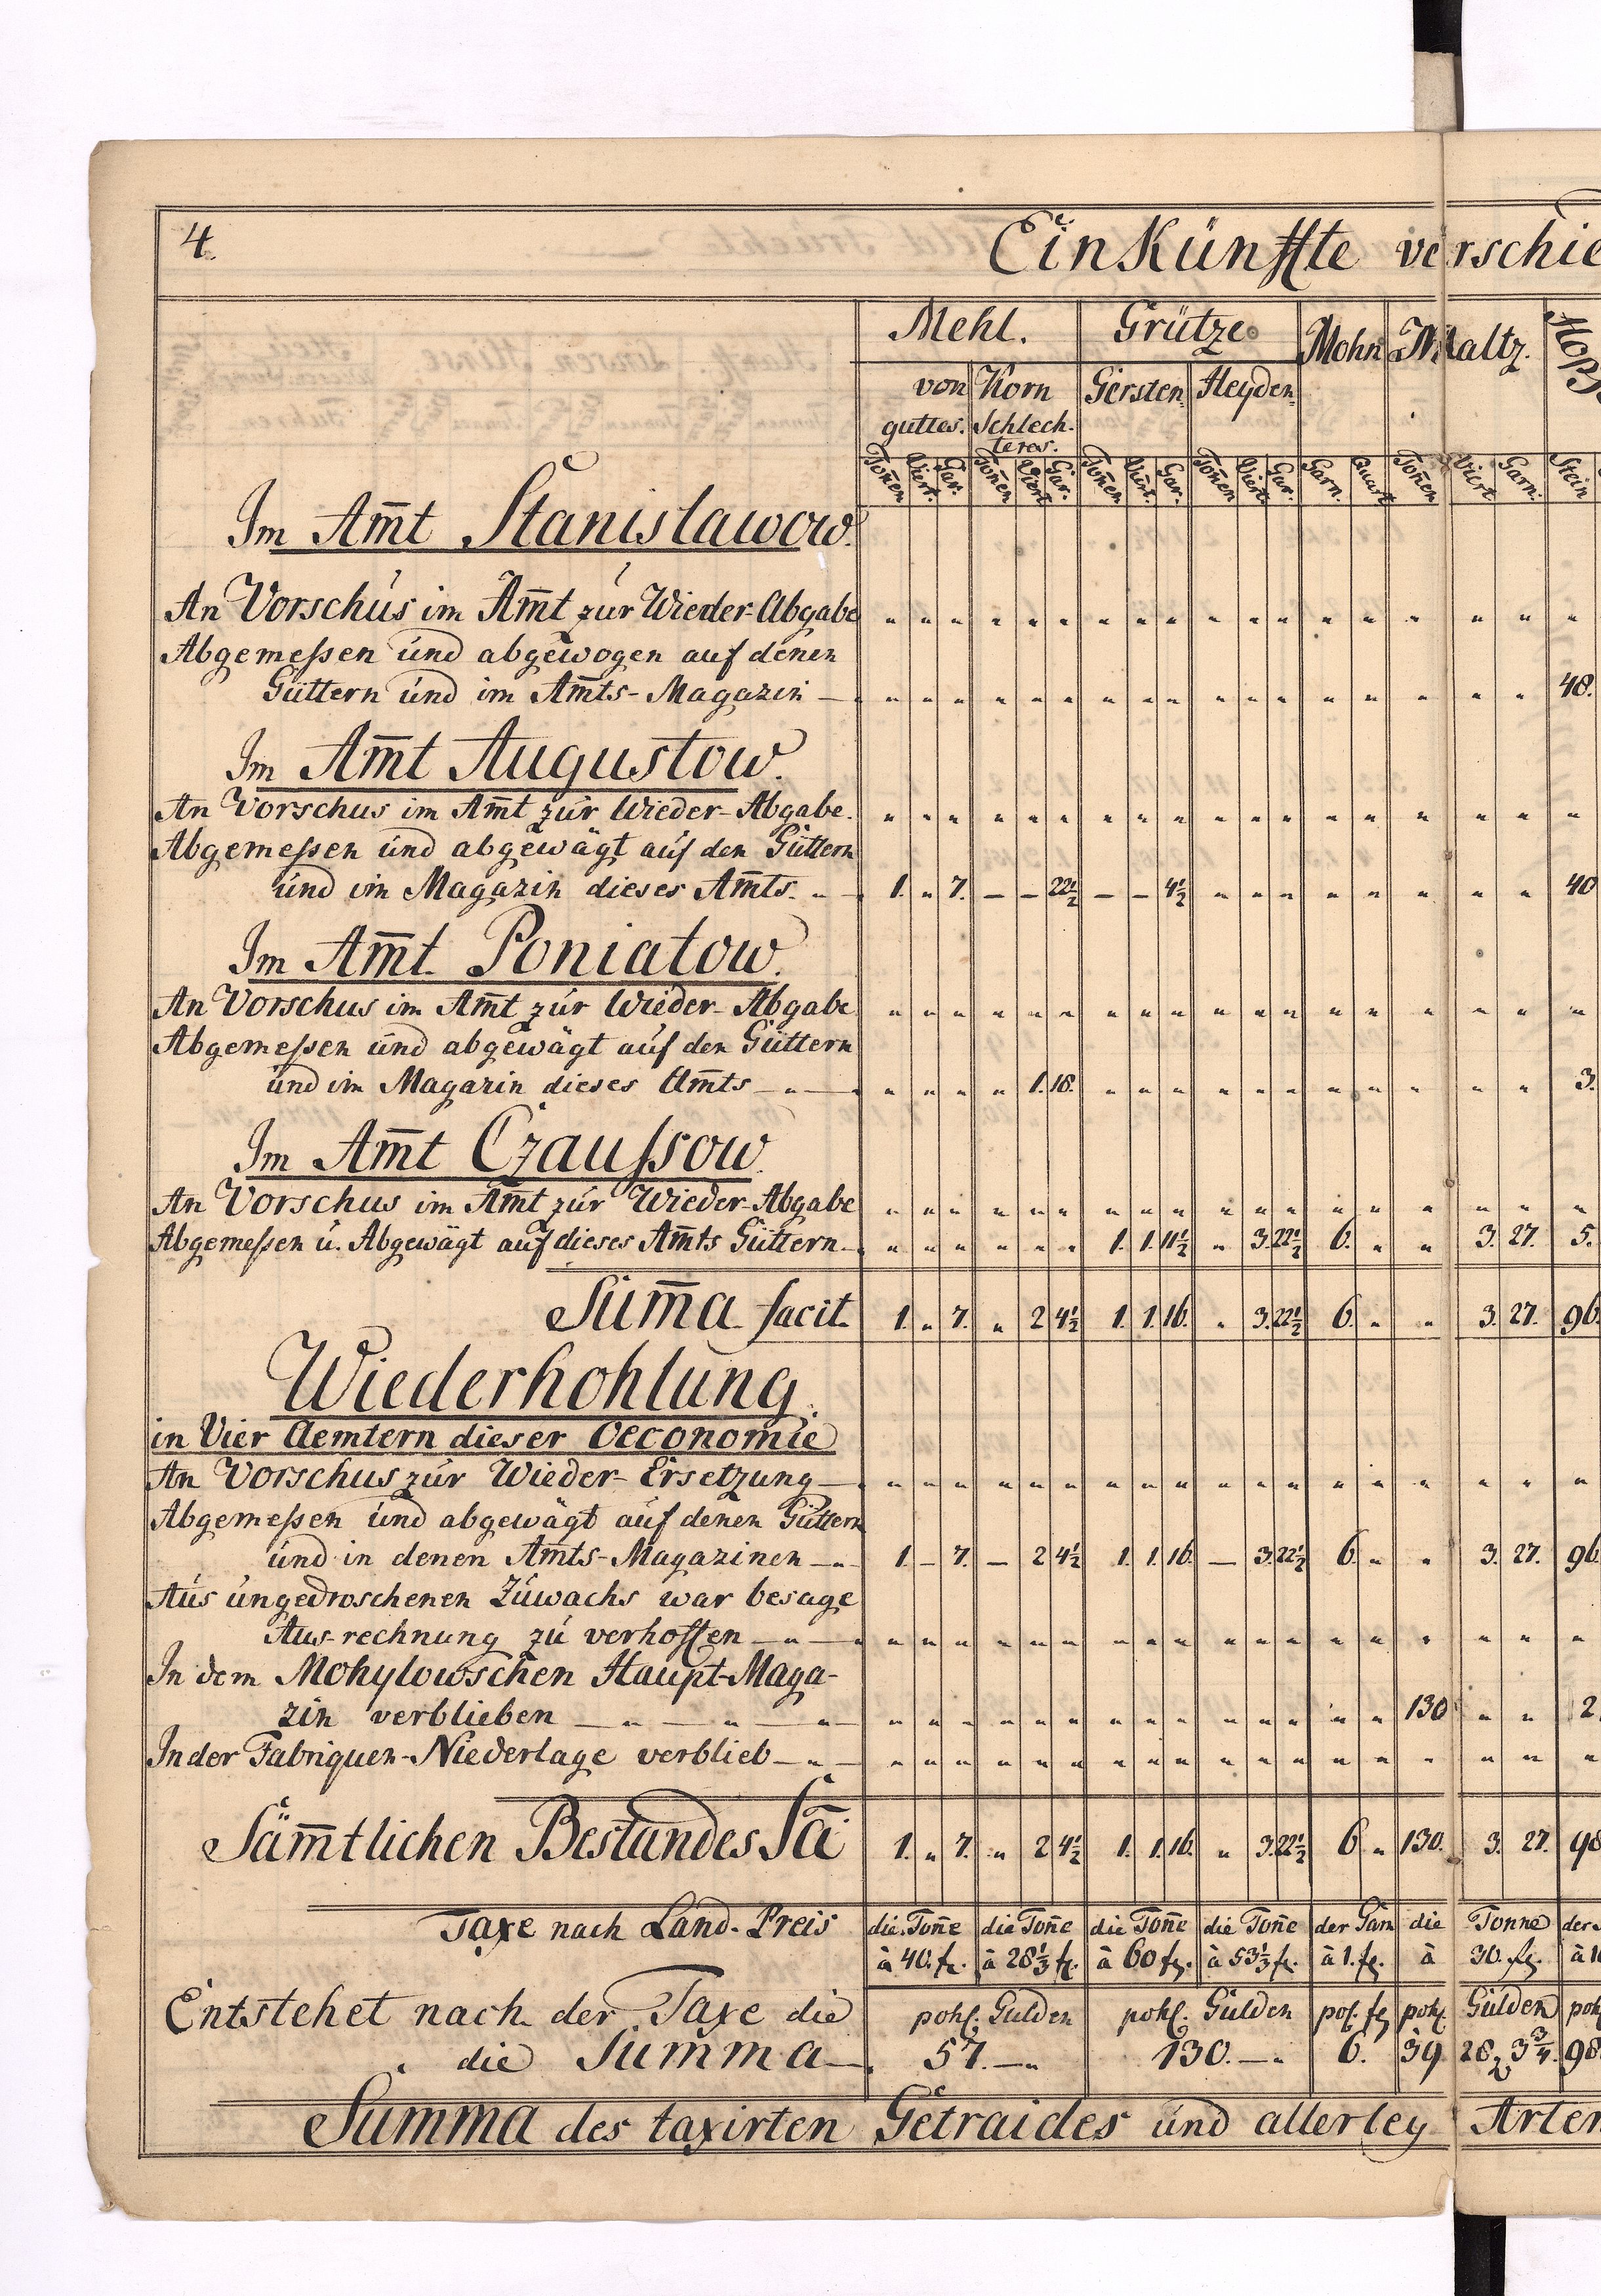 4.
Einkünffte verschie
Mehl. Grütze Mohn Maltz. Hopf
von Korn Gersten Heyden
guttes. Schlech-
teres.
Tonen Viert. Gar. Tonen Viert Gar. Tonen Viert. Gar. Tonen Viert Gar. Garn. Quart Tonen Viert Garn. Stein
Im Amt Stanislawow.
An Vorschus im Amt zur Wieder-Abgabe " " " " " " " " " " " " " " " " " "
Abgemessen und abgewogen auf denen
Güttern und im Amts-Magazin — " " " " " " " " " " " " " " " " " 48.
Im Amt Augustow.
An Vorschus im Amt zur Wieder-Abgabe. " " " " " " " " " " " " " " " " " "
Abgemessen und abgewägt auf den Güttern
und im Magazin dieses Amts. " — 1. " 7. — — 22½ — — 4½ " " " " " " " " 40
Im Amt Poniatow.
An Vorschus im Amt zur Wieder-Abgabe " " " " " " " " " " " " " " " " " "
Abgemessen und abgewägt auf den Güttern
und im Magazin dieses Amts — " — " " " " 1. 18. " " " " " " " " " " " 3.
Im Amt Czaussow.
An Vorschus im Amt zur Wieder-Abgabe " " " " " " " " " " " " " " " " " "
Abgemessen u. Abgewägt auf dieses Amts Güttern. " " " " " " 1. 1. 11½ " 3. 22½ 6. " " 3. 27. 5.
Suma facit. 1. " 7. " 2 4½ 1. 1. 16. " 3. 22½ 6. " " 3. 27. 96.
Wiederhohlung.
in Vier Aemtern dieser Oeconomie
An Vorschus zur Wieder-Ersetzung — " " " " " " " " " " " " " " " " " "
Abgemessen und abgewägt auf denen Güttern
und in denen Amts-Magazinen — " 1. — 7. — 2 4½ 1. 1. 16. — 3. 22½ 6. " " 3. 27. 96.
Aus ungedroschenen Zuwachs war besage
Aus-rechnung zu verhoffen — " — " " " " " " " " " " " " " " " " " "
In dem Mohylowschen Haupt-Maga-
zin verblieben — " — " — " — " " " " " " " " " " " " " " 130 " " 2
In der Fabriquen-Niederlage verblieb — " — " " " " " " " " " " " " " " " " " "
Sämtlichen Bestandes Sa 1. " 7. " 2 4½ 1. 1. 16. " 3. 22½ 6 " 130. 3. 27. 98
Taxe nach Land-Preis die Tone die Tone die Tone die Tone der Garn die Tonne der
à 40. fl. à 28⅓ fl. à 60 fl. à 53⅓ fl. à 1. fl. à 30. fl. à 1
Entstehet nach der Taxe die pohl. Gulden pohl. Gulden pol. fl pohl. Gulden poh
die Summa — 57. — " 130. — " 6. 39 28, 3¾. 98
Summa des taxirten Getraides und allerley Arten